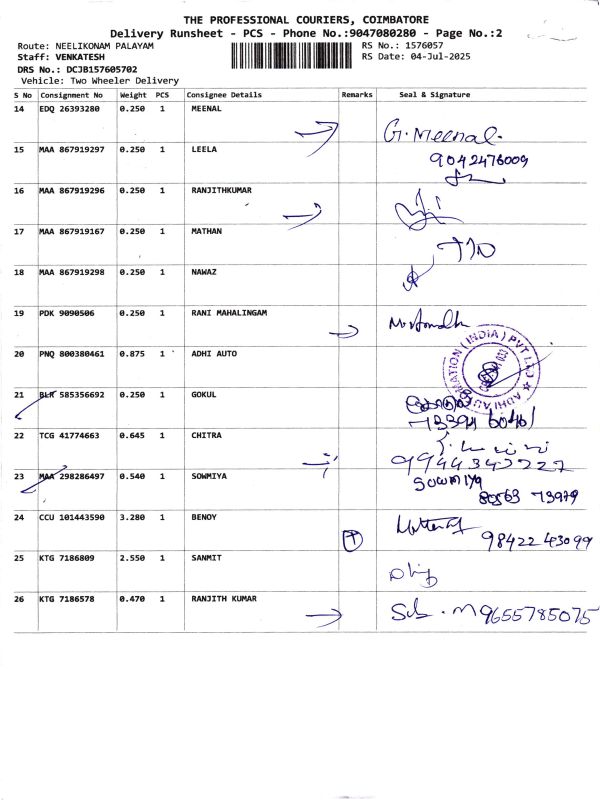 THE PROFESSIONAL COURIERS, COIMBATORE
Delivery Runsheet - PCS - Phone No.:9047080280 - Page No.:2
Route: NEELIKONAM PALAYAM RS No.: 1576057
Staff: VENKATESH RS Date: 04-Jul-2025
DRS No.: DCJB157605702
Vehicle: Two Wheeler Delivery
S No Consignment No Weight PCS Consignee Details Remarks Seal & Signature
14 EDQ 26393280 0.250 1 MEENAL G. Meenal.
15 MAA 867919297 0.250 1 LEELA 9042476009
16 MAA 867919296 0.250 1 RANJITHKUMAR
17 MAA 867919167 0.250 1 MATHAN
18 MAA 867919298 0.250 1 NAWAZ
19 PDK 9090506 0.250 1 RANI MAHALINGAM
20 PNQ 800380461 0.875 1 ADHI AUTO ADHI AUTOMATION (INDIA) PVT LTD
21 BLR 585356692 0.250 1 GOKUL
22 TCG 41774663 0.645 1 CHITRA 9944347227
23 MAA 298286497 0.540 1 SOWMIYA Sowmiya
80563 73979
24 CCU 101443590 3.280 1 BENOY 98422 43099
25 KTG 7186809 2.550 1 SANMIT
26 KTG 7186578 0.470 1 RANJITH KUMAR 9655785075